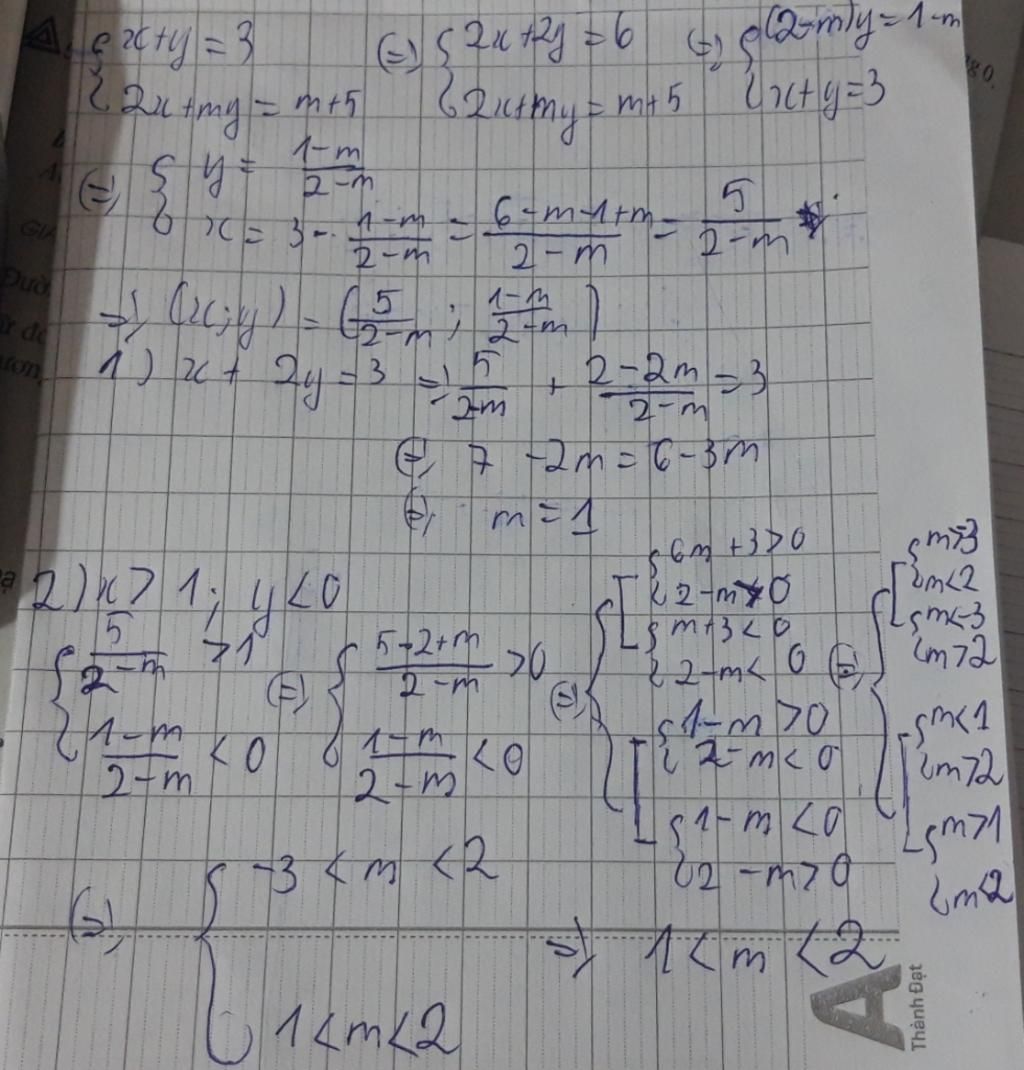 { x+y=3 (=) { 2x+2y=6 (=) { (2-m)y=1-m
{ 2x+my=m+5 { 2x+my=m+5 { x+y=3
(=) { y = \frac{1-m}{2-m}
{ x = 3 - \frac{1-m}{2-m} = \frac{6-m-1+m}{2-m} = \frac{5}{2-m}
=> (x;y) = (\frac{5}{2-m}; \frac{1-m}{2-m})
1) x + 2y = 3 => \frac{5}{2-m} + \frac{2-2m}{2-m} = 3
(=) 7 - 2m = 6 - 3m
(=) m = 1
2) x > 1; y < 0
{ \frac{5}{2-m} > 1 (=) { \frac{5-2+m}{2-m} > 0
{ \frac{1-m}{2-m} < 0 { \frac{1-m}{2-m} < 0
(=) { [ { 6m+3>0
{ 2-m>0
{ m+3<0
{ 2-m<0
[ { 1-m>0
{ 2-m<0
{ 1-m<0
{ 2-m>0
(=) { [ { m>-3
{ m<2
{ m<-3
{ m>2
[ { m<1
{ m>2
{ m>1
{ m<2
(=) { -3 < m < 2
{ 1 < m < 2
=> 1 < m < 2
A
Thành Đạt